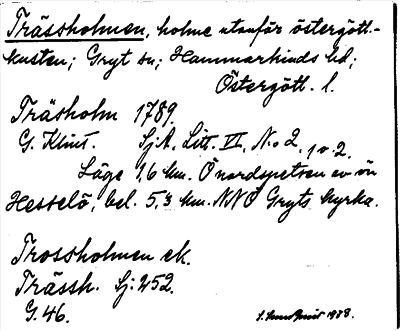 Trässholmen, holme utanför östergötl.-
kusten; Gryt sn; Hammarkinds hd;
Östergötl. l.
Träsholm 1789.
G. Klint. Sj.A. Litt. VI, No 2. 1 o. 2.
Läge 1,6 km. Ö nordspetsen av ön
Hesselö, bel. 5,3 km. NNO Gryts kyrka.
Trossholmen ek.
Trässh. Sj: 252.
G. 46.
1938.